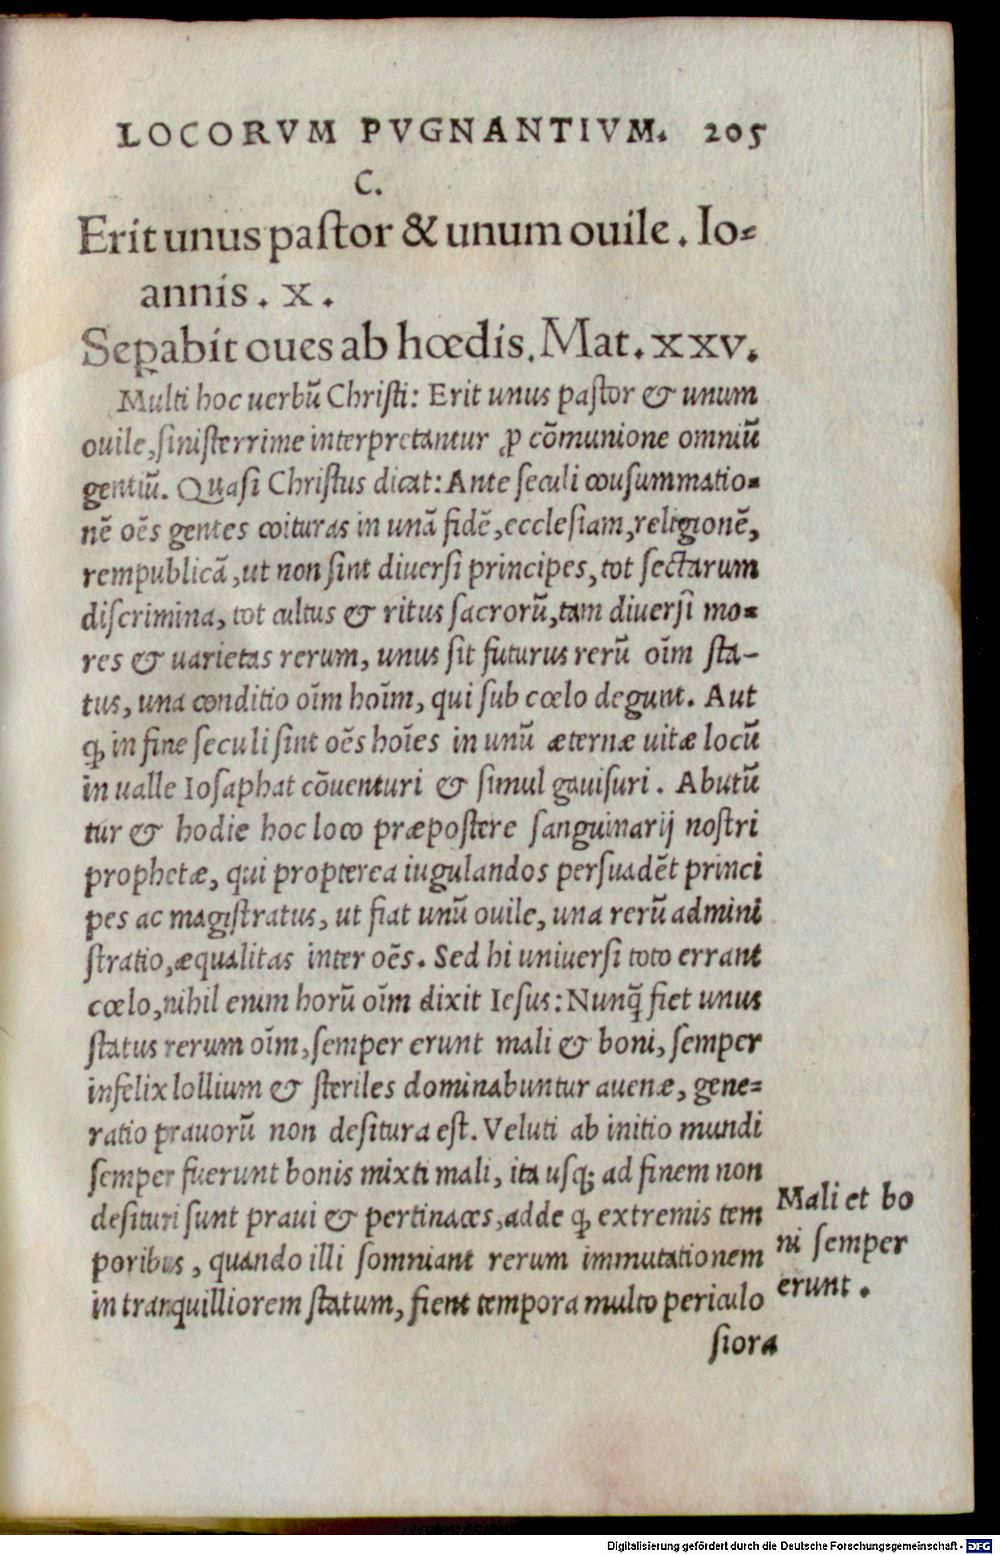 LOCORVM PVGNANTIVM. 205
C.
Erit unus pastor & unum ouile. Io-
annis. x.
Sepabit oues ab hœdis. Mat. xxv.
Multi hoc uerbũ Christi: Erit unus pastor & unum
ouile, sinisterrime interpretantur ꝓ cõmunione omniũ
gentiũ. Quasi Christus dicat: Ante seculi cousummatio-
nẽ oẽs gentes coituras in unã fidẽ, ecclesiam, religionẽ,
rempublicã, ut non sint diuersi principes, tot sectarum
discrimina, tot cultus & ritus sacrorũ, tam diuersi mo-
res & uarietas rerum, unus sit futurus rerũ oĩm sta-
tus, una conditio oĩm hoĩm, qui sub cœlo degunt. Aut
ꝙ in fine seculi sint oẽs hoĩes in unũ æternæ uitæ locũ
in ualle Iosaphat cõuenturi & simul gauisuri. Abutũ
tur & hodie hoc loco præpostere sanguinarij nostri
prophetæ, qui propterea iugulandos persuadẽt princi
pes ac magistratus, ut fiat unũ ouile, una rerũ admini
stratio, æqualitas inter oẽs. Sed hi uniuersi toto errant
cœlo, nihil enim horũ oĩm dixit Iesus: Nunꝗ̃ fiet unus
status rerum oĩm, semper erunt mali & boni, semper
infelix lollium & steriles dominabuntur auenæ, gene-
ratio prauorũ non desitura est. Veluti ab initio mundi
semper fuerunt bonis mixti mali, ita usq; ad finem non
desituri sunt praui & pertinaces, adde ꝙ extremis tem
poribus, quando illi somniant rerum immutationem
in tranquilliorem statum, fient tempora multo periculo
siora
Mali et bo
ni semper
erunt.
Digitalisierung gefördert durch die Deutsche Forschungsgemeinschaft - DFG